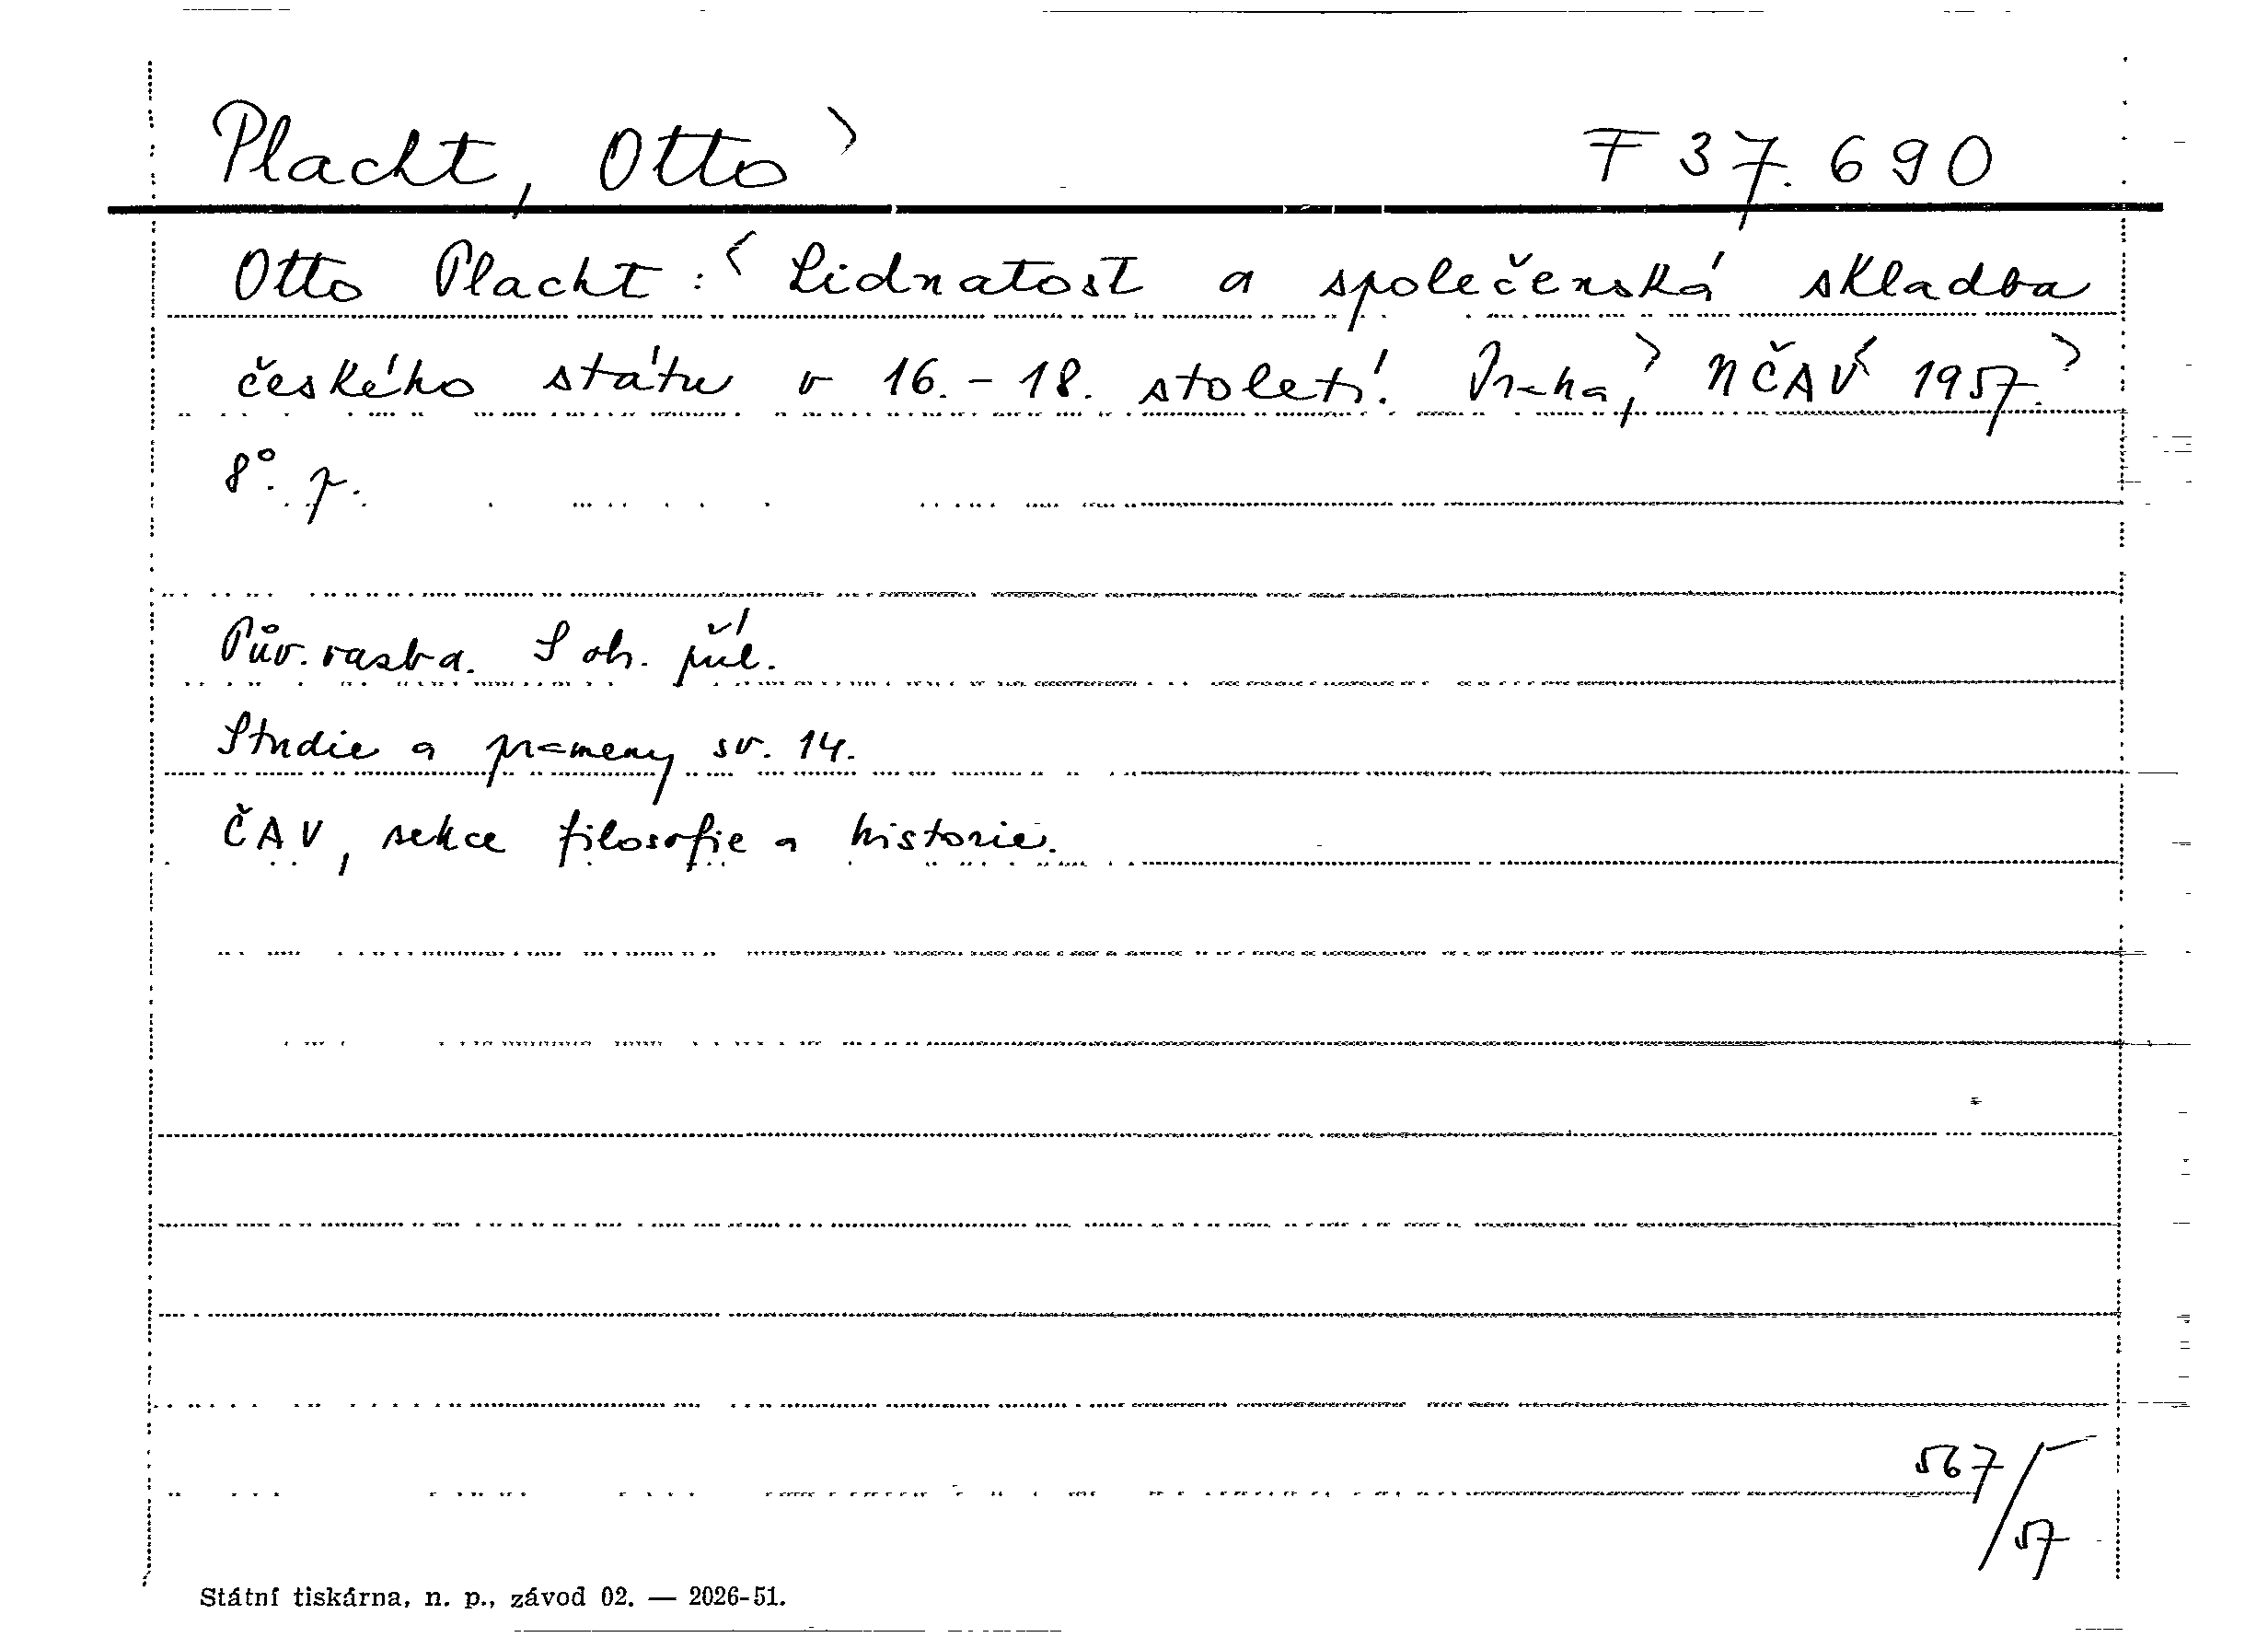 Placht, Otto F 37.690
Otto Placht: Lidnatost a společenská skladba
českého státu v 16.-18. století. Praha, NČAV 1957.
8°. p.
Pův. vazba. S ob. příl.
Studie a prameny sv. 14.
ČAV, sekce filosofie a historie.
567/57
Státní tiskárna, n. p., závod 02. — 2026-51.